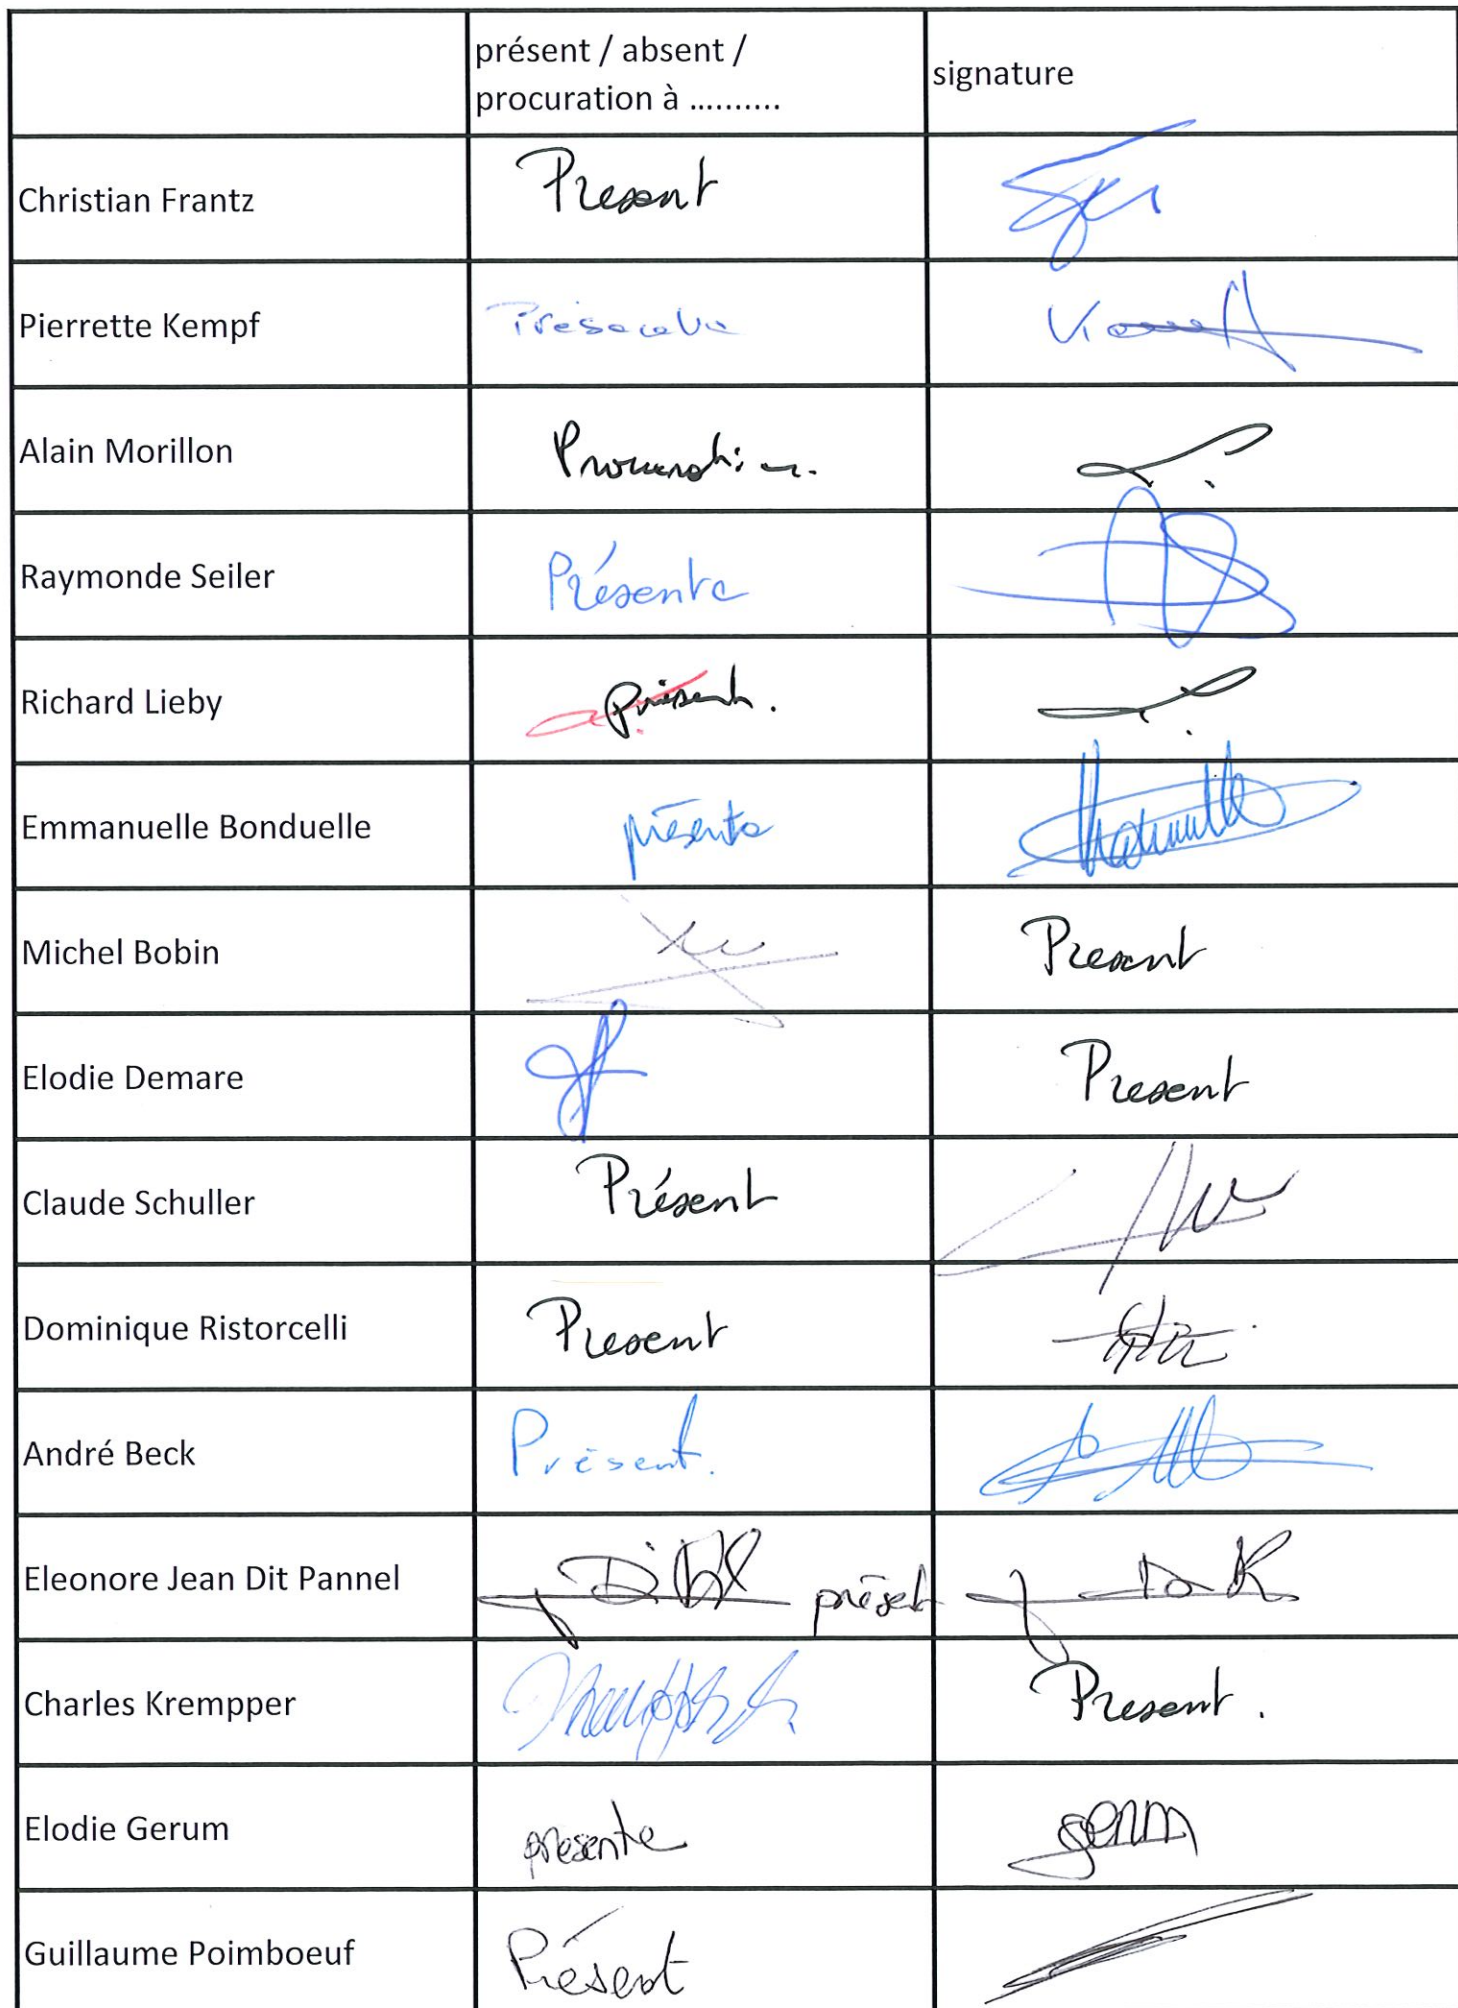 présent / absent /
procuration à ..........
signature
Christian Frantz
Present
Pierrette Kempf
Présente
Alain Morillon
Procuration.
Raymonde Seiler
Présente
Richard Lieby
présent.
Emmanuelle Bonduelle
présente
Michel Bobin
Present
Elodie Demare
Present
Claude Schuller
Présent
Dominique Ristorcelli
Present
André Beck
Présent.
Eleonore Jean Dit Pannel
présent
Charles Krempper
Present.
Elodie Gerum
presente
gerum
Guillaume Poimboeuf
Présent